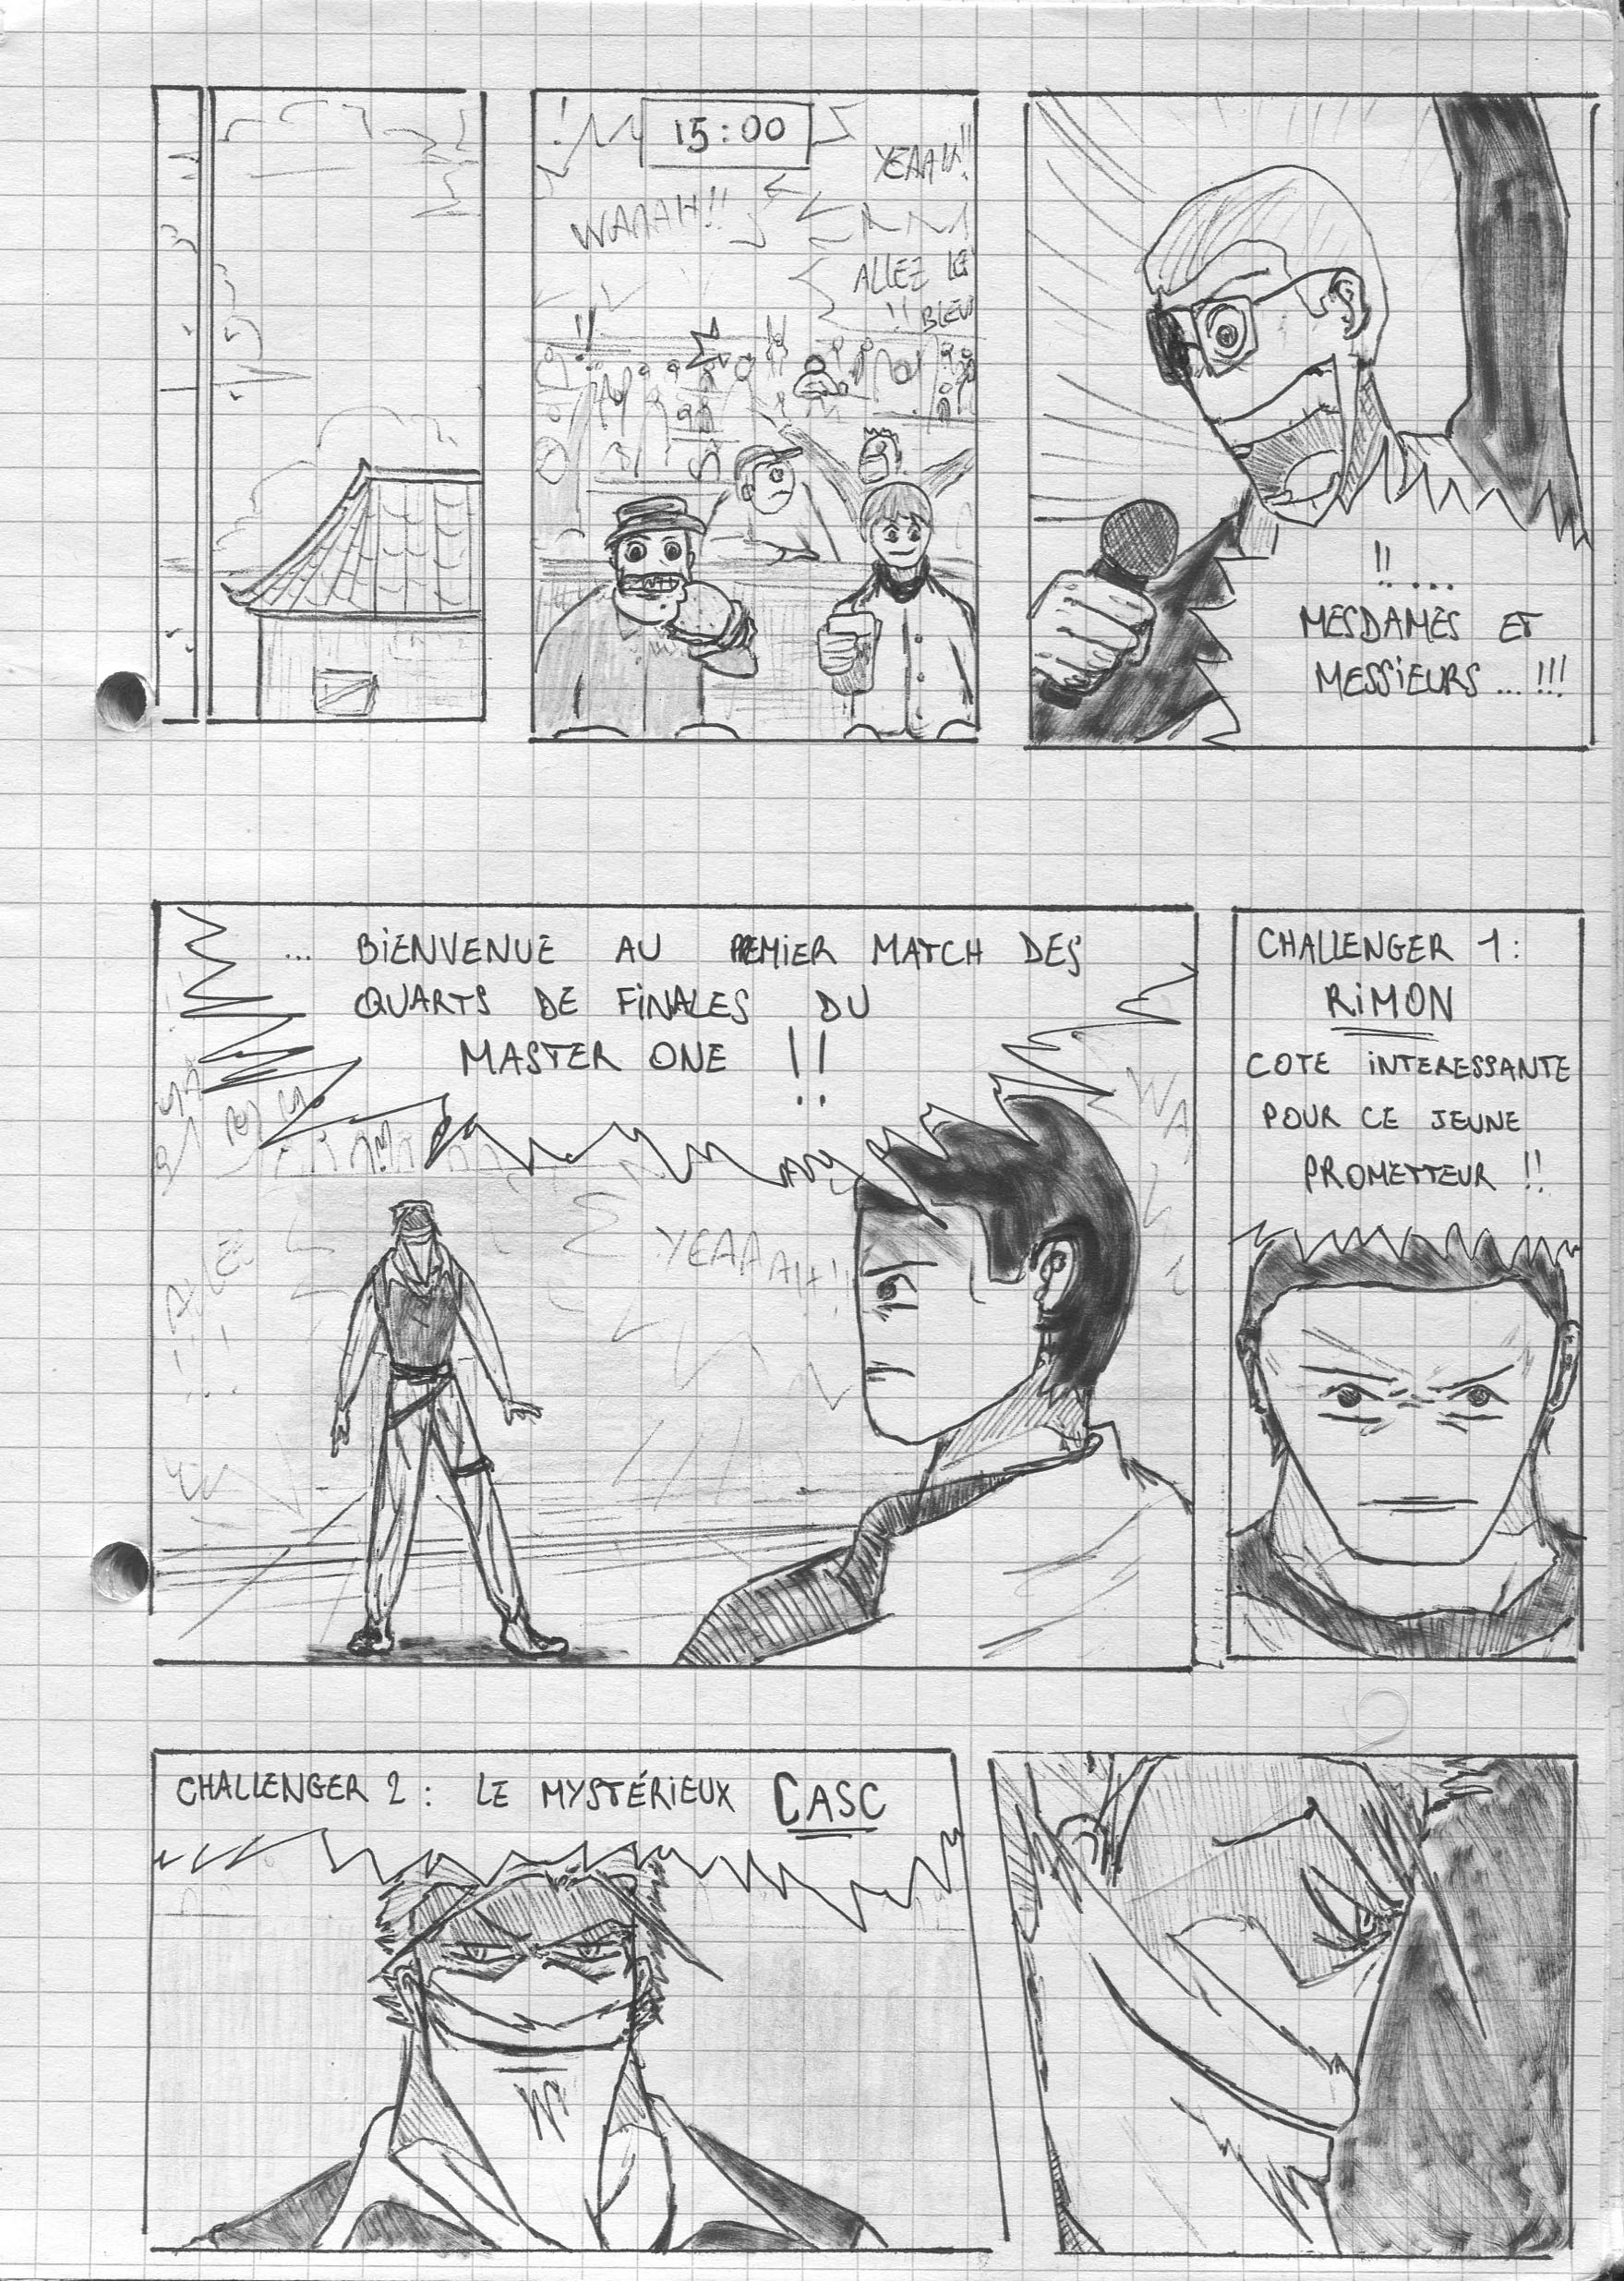 15:00
YEAAH!!
WAAAH!!
ALLEZ LES
!! BLEUS
!! ...
MESDAMES ET
MESSIEURS ... !!!
... BIENVENUE AU PREMIER MATCH DES
QUARTS DE FINALES DU
MASTER ONE !!
YEAAAAH!!
CHALLENGER 1:
RIMON
COTE INTERESSANTE
POUR CE JEUNE
PROMETTEUR !!
CHALLENGER 2 : LE MYSTÉRIEUX CASC